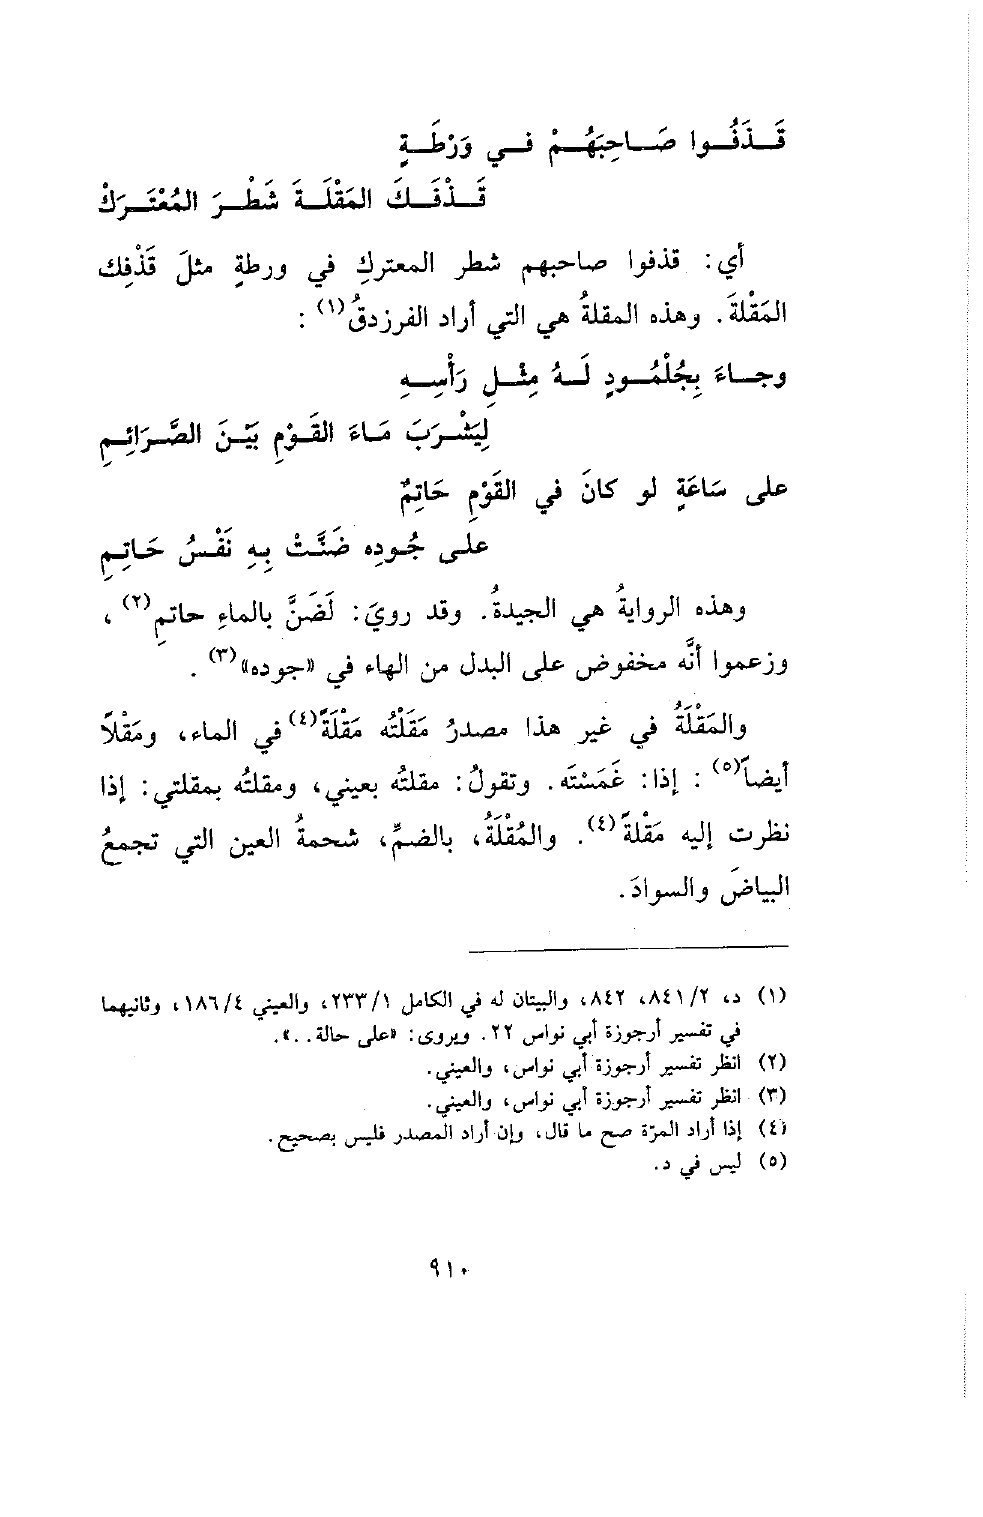 قَــذَفُــوا صَــاحِبَهُــمْ فــي وَرْطَــةٍ
قَــذْفَــكَ المَقْلَــةَ شَطْــرَ المُعْتَــرَكْ
أي: قذفوا صاحبهم شطر المعتركِ في ورطةٍ مثلَ قَذْفِك
المَقْلةَ. وهذه المقلةُ هي التي أراد الفرزدقُ(١) :
وجــاءَ بِجُلْمُــودٍ لَــهُ مِثْــلِ رَأْسِــهِ
لِيَشْــرَبَ مَــاءَ القَــوْمِ بَيْــنَ الصَّــرَائِــمِ
على سَاعَةٍ لو كانَ في القَوْمِ حَاتِمٌ
علــى جُــودِه ضَنَّــتْ بِــهِ نَفْــسُ حَــاتِــمِ
وهذه الروايةُ هي الجيدةُ. وقد رويَ: لَضَنَّ بالماءِ حاتمِ(٢) ،
وزعموا أنَّه مخفوض على البدل من الهاء في «جوده»(٣) .
والمَقْلَةُ في غير هذا مصدرُ مَقَلْتُه مَقْلَةً(٤) في الماء، ومَقْلاً
أيضاً(٥) : إذا: غَمَسْتَه. وتقولُ: مقلتُه بعيني، ومقلتُه بمقلتي: إذا
نظرت إليه مَقْلةً(٤). والمُقْلَةُ، بالضمِّ، شحمةُ العين التي تجمعُ
البياضَ والسوادَ.
(١) د، ٨٤١/٢، ٨٤٢، والبيتان له في الكامل ٢٣٣/١، والعيني ١٨٦/٤، وثانيهما
في تفسير أرجوزة أبي نواس ٢٢. ويروى: «على حالة. .».
(٢) انظر تفسير أرجوزة أبي نواس، والعيني.
(٣) انظر تفسير أرجوزة أبي نواس، والعيني.
(٤) إذا أراد المرّة صح ما قال، وإن أراد المصدر فليس بصحيح.
(٥) ليس في د.
٩١٠